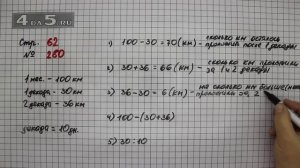 4 ДА 5.RU
Стр. 62
№ 260
1 мес. - 100 км
1 декада - 30 км
2 декада - 36 км
декада = 10 дн.
1) 100-30=70 (км) - сколько км осталось
проплыть после 1 декады
2) 30+36=66 (км) - сколько км проплыли
за 1 и 2 декады
3) 36-30=6 (км) - на сколько км больше
за 2
4) 100-(30+36)
5) 30:10